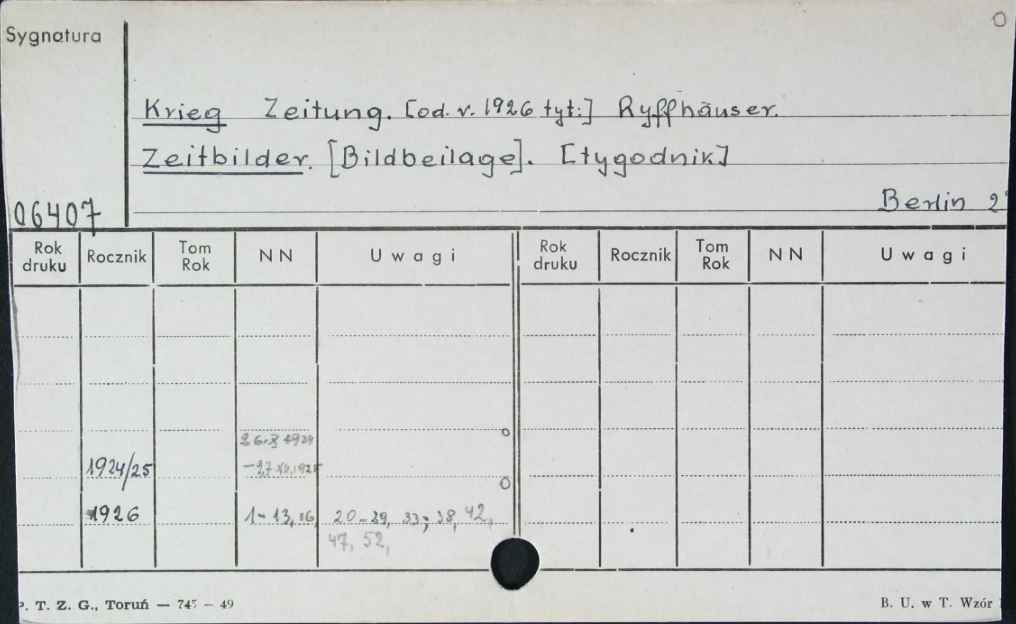 Sygnatura
Krieg Zeitung. [od. v. 1926 tyt:] Ryffhäuser.
Zeitbilder. [Bildbeilage]. [tygodnik]
Berlin 2°
06407
Rok druku Rocznik Tom Rok NN Uwagi Rok druku Rocznik Tom Rok NN Uwagi
1924/25
1926 1-13, 16, 20-29, 33, 38, 42,
47, 52,
P. T. Z. G., Toruń — 745 — 49 B. U. w T. Wzór